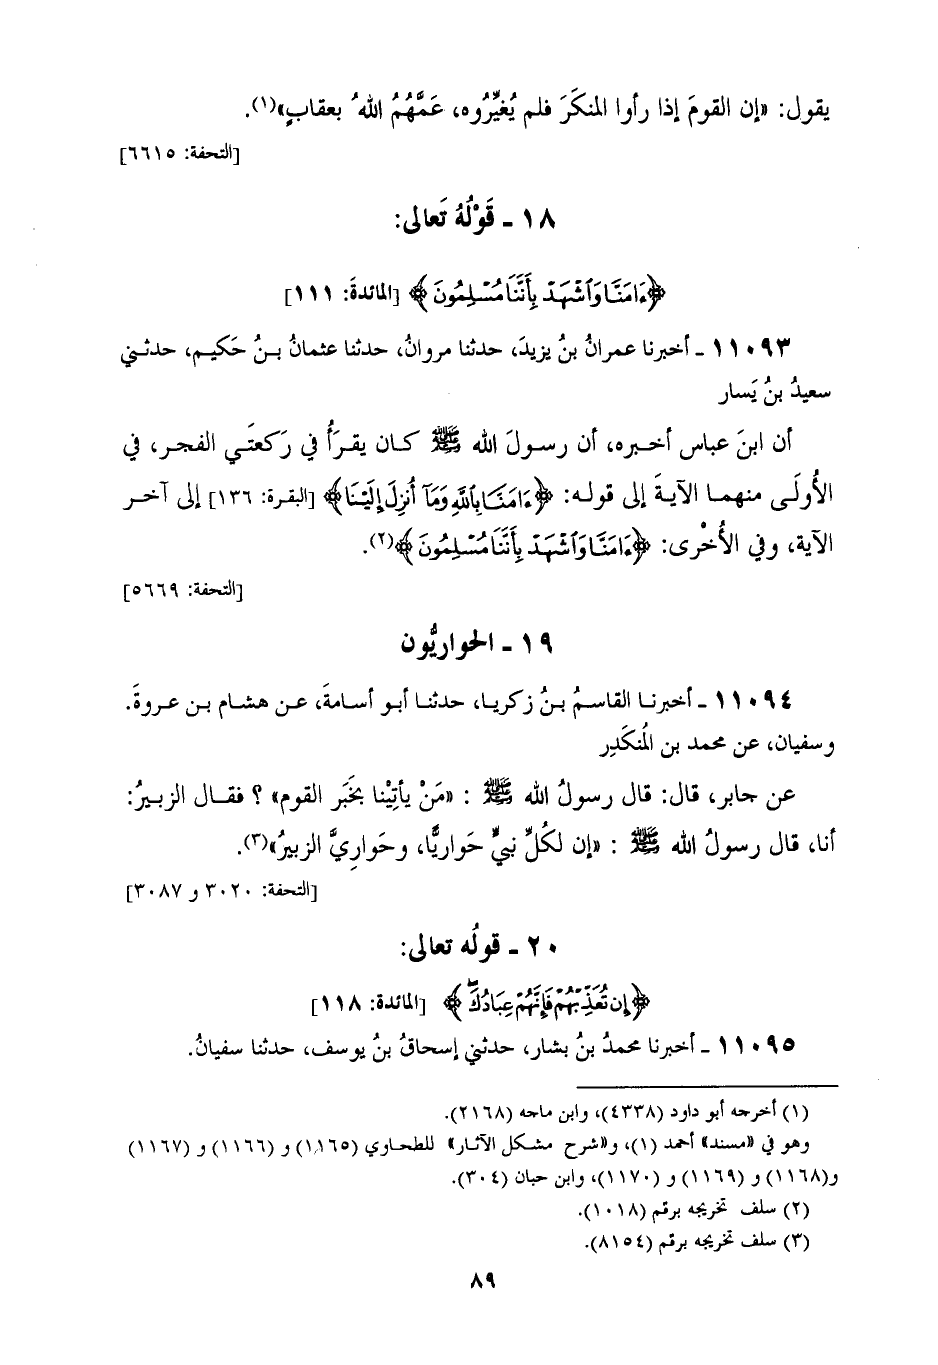 يقول: «إن القومَ إذا رأوا المنكَرَ فلم يُغيِّرُوه، عَمَّهُمُ اللهُ بعقابٍ»(١).
[التحفة: ٦٦١٥]
١٨ ـ قَوْلُهُ تَعالى:
﴿ءَامَنَّا وَٱشْهَدْ بِأَنَّنَا مُسْلِمُونَ﴾ [المائدة: ١١١]
١١٠٩٣ ـ أخبرنا عمرانُ بنُ يزيدَ، حدثنا مروانُ، حدثنا عثمانُ بنُ حَكيم، حدثني
سعيدُ بنُ يَسار
أن ابنَ عباس أخبره، أن رسولَ الله ﷺ كان يقرَأُ في رَكعتَي الفجر، في
الأُولَى منهما الآيةَ إلى قوله: ﴿ءَامَنَّا بِٱللَّهِ وَمَآ أُنزِلَ إِلَيْنَا﴾ [البقرة: ١٣٦] إلى آخر
الآية، وفي الأُخْرى: ﴿ءَامَنَّا وَٱشْهَدْ بِأَنَّنَا مُسْلِمُونَ﴾(٢).
[التحفة: ٥٦٦٩]
١٩ ـ الحواريُّون
١١٠٩٤ ـ أخبرنا القاسمُ بنُ زكريا، حدثنا أبو أسامةَ، عن هشام بن عروةَ.
وسفيان، عن محمد بن المُنكَدِر
عن جابر، قال: قال رسولُ الله ﷺ : «مَنْ يأتِيْنا بخَبَر القوم» ؟ فقال الزبيرُ:
أنا، قال رسولُ الله ﷺ : «إن لكُلِّ نبيٍّ حَواريًّا، وحَواريَّ الزبيرُ»(٣).
[التحفة: ٣٠٢٠ و ٣٠٨٧]
٢٠ ـ قولُه تعالى:
﴿إِن تُعَذِّبْهُمْ فَإِنَّهُمْ عِبَادُكَ﴾ [المائدة: ١١٨]
١١٠٩٥ ـ أخبرنا محمدُ بنُ بشار، حدثني إسحاقُ بنُ يوسف، حدثنا سفيانُ.
(١) أخرجه أبو داود (٤٣٣٨)، وابن ماجه (٢١٦٨).
وهو في «مسند» أحمد (١)، و«شرح مشكل الآثار» للطحاوي (١١٦٥) و (١١٦٦) و (١١٦٧)
و(١١٦٨) و (١١٦٩) و (١١٧٠)، وابن حبان (٣٠٤).
(٢) سلف تخريجه برقم (١٠١٨).
(٣) سلف تخريجه برقم (٨١٥٤).
٨٩